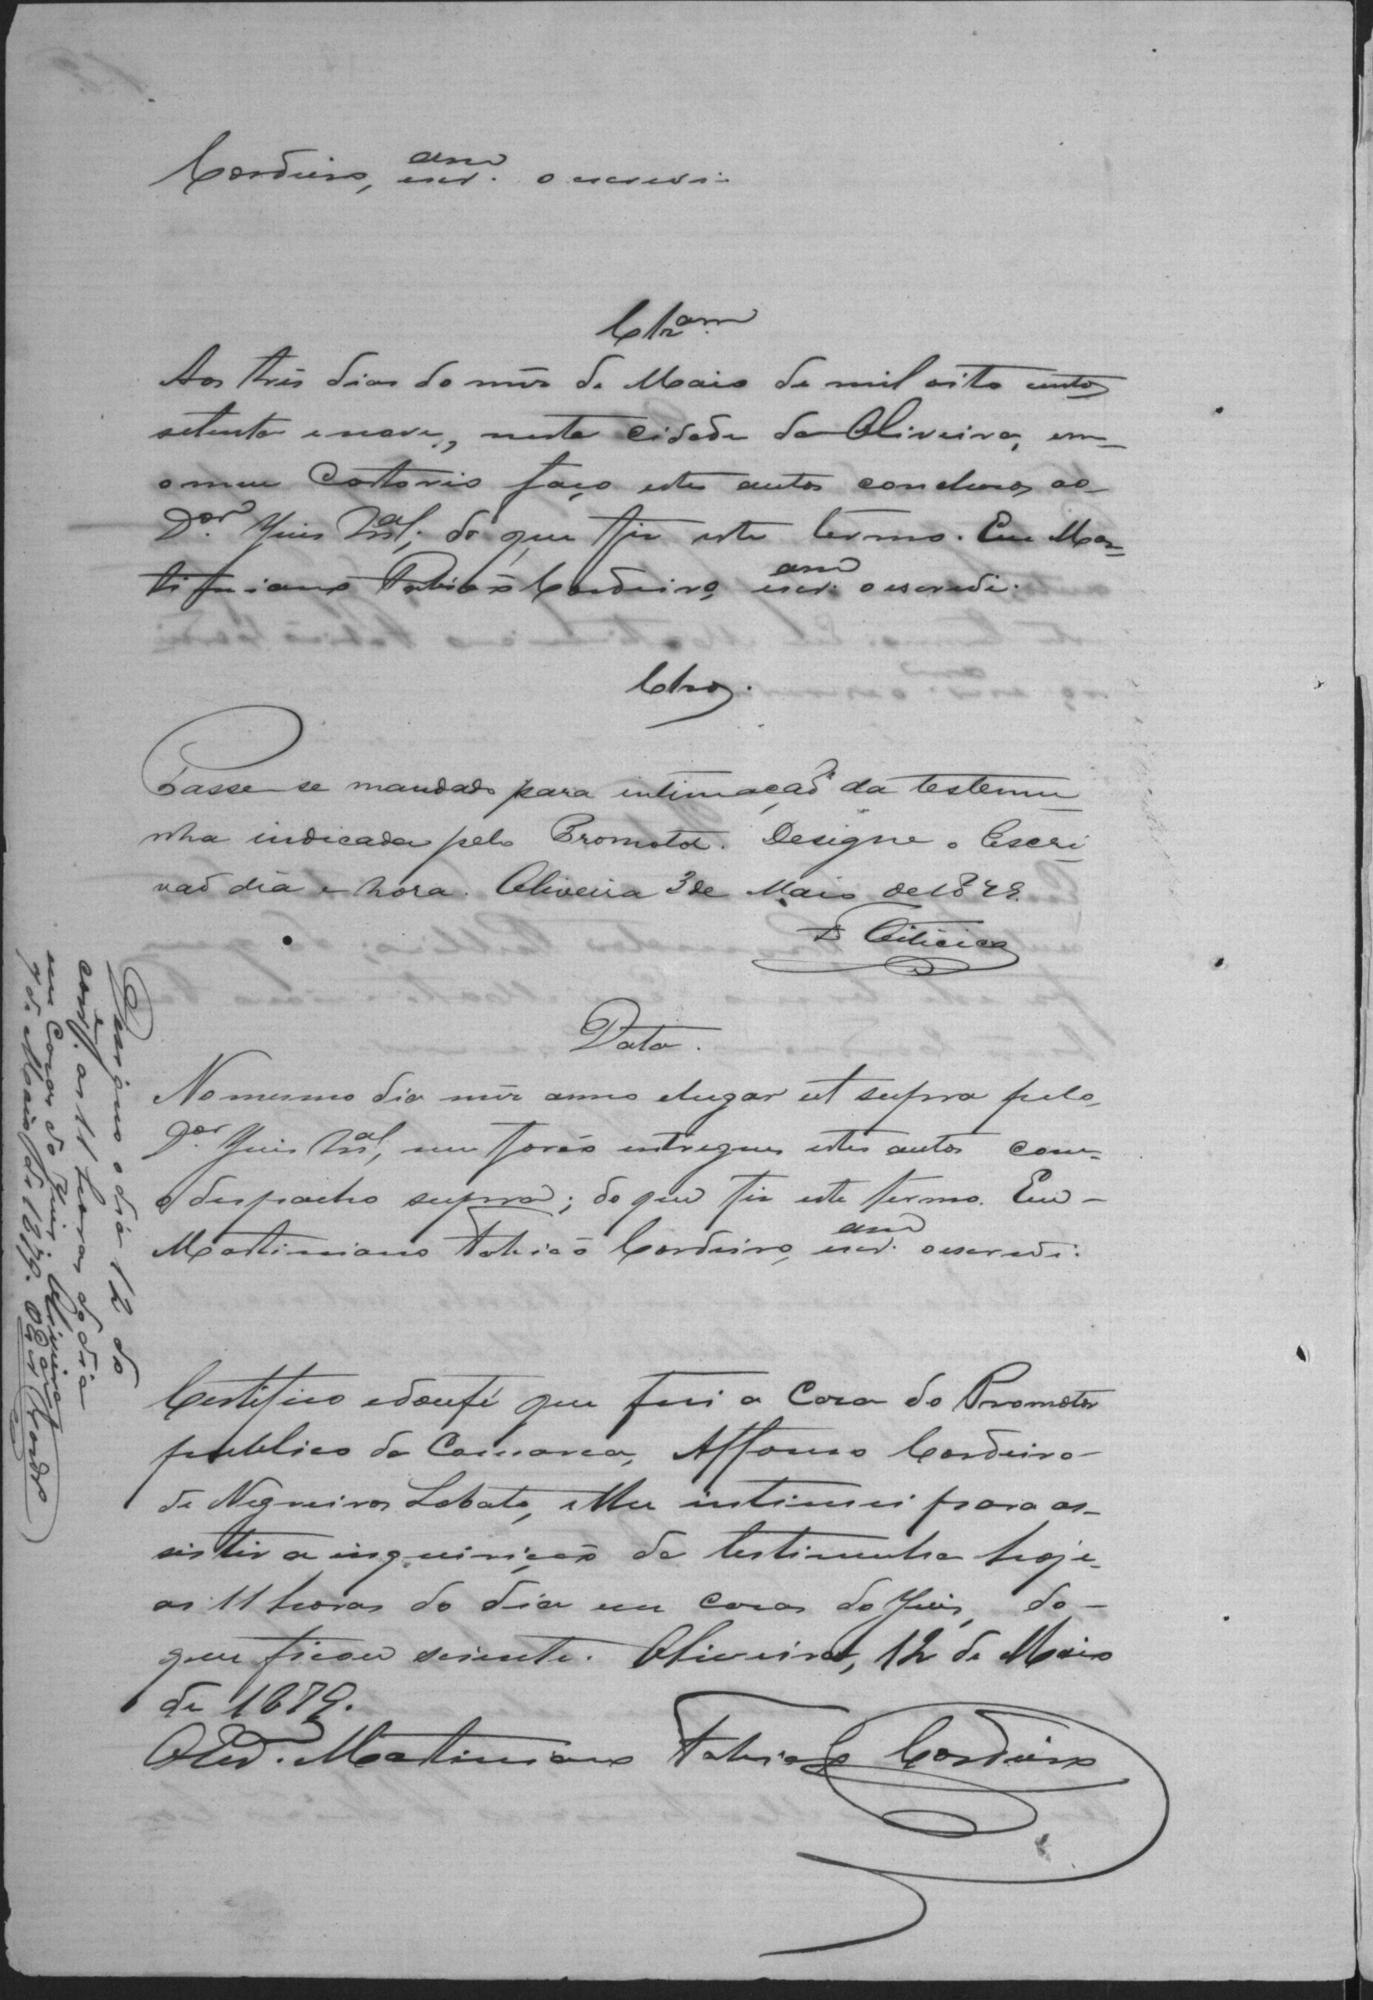 Cordeiro, escr.am o escrevi.
Clzam
Aos tres dias do mês de Maio de mil oito centos
setenta e nove, nesta Cidade da Oliveira, em
o meu Cartorio faço estes autos conclusos ao
Dor. Juis Mal; do que fiz este termo. Eu Mar=
timiano Fabião Cordeiro, escr.am o escrevi.
Clzos.
Passe-se mandado para intimação da testemu
nha indicada pelo Promotor. Designe o Escri
vaõ dia e hora. Oliveira 3 de Maio de 1879.
Data.
No mesmo dia mês anno e lugar ut supra pelo
Dor. Juis Mal, me forão entregues estes autos com
o despacho supra; do que fiz este termo. Eu
Martimiano Fabião Cordeiro, escr.am o escrevi.
Designo o dia 12 do
corre. as 11 horas do dia
em Casa do Juis. Oliveira,
de Maio de 1879. O Escr.am Cordro
Certifico e dou fé que fui a Casa do Promotor
publico da Comarca, Affonso Cordeiro
de Negreiros Lobato, e lhe intimei para as-
sistir a inquirição da testimunha hoje
as 11 horas do dia em casa do Juis, do
que ficou sciente. Oliveira, 12 de Maio
de 1879.
O Escr. Martimiano Fabião Cordeiro